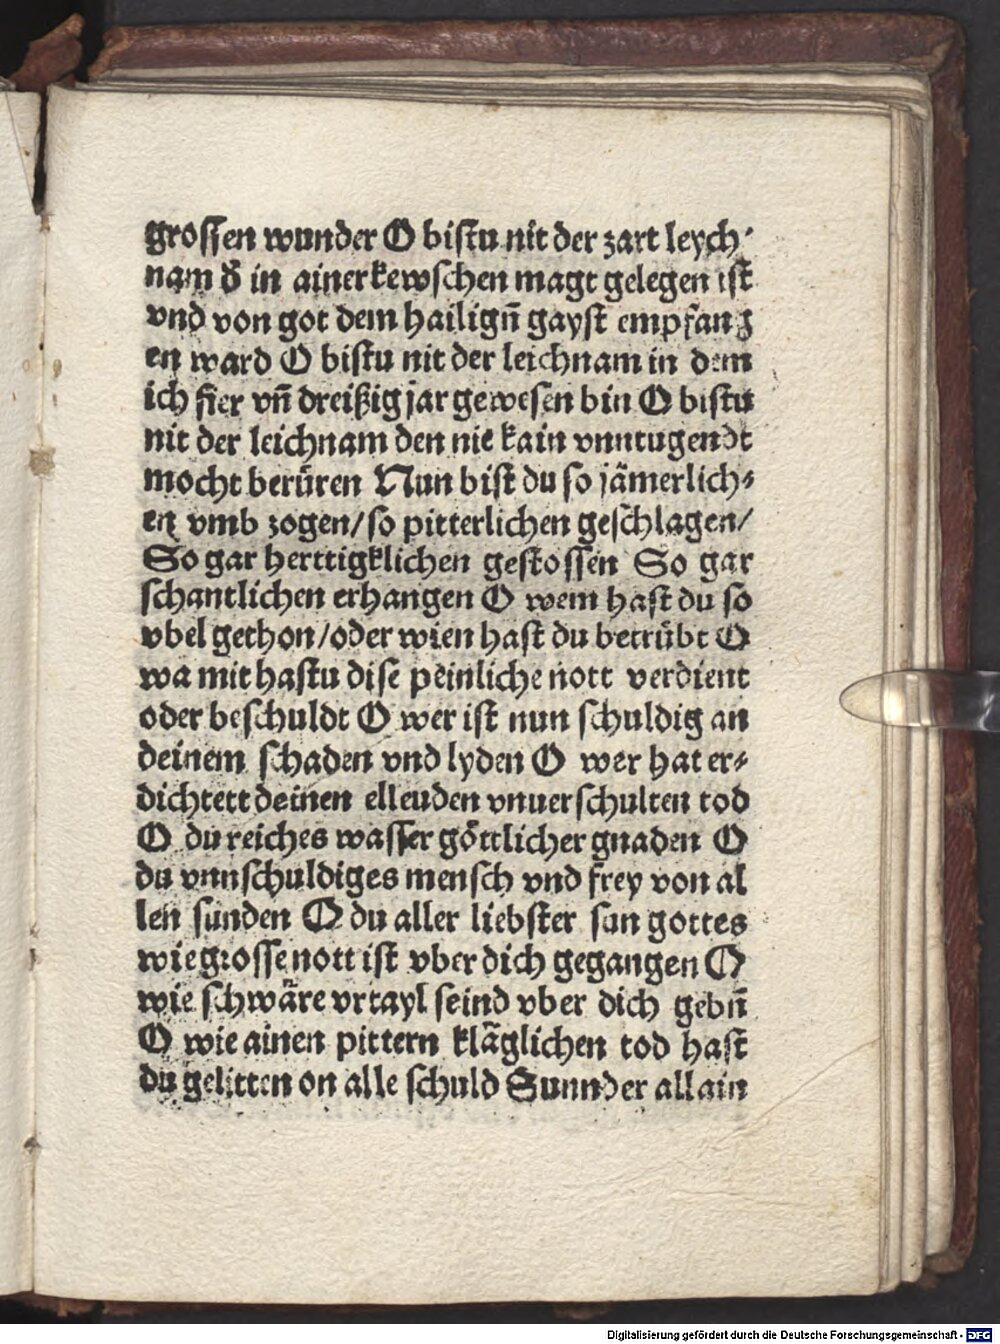 grossen wunder O bistu nit der zart leych⸗
nam d̕ in ainer kewschen magt gelegen ist
vnd von got dem hailigñ gayst empfang
en ward O bistu nit der leichnam in dem
ich fier vñ dreißig jar gewesen bin O bistu
nit der leichnam den nie kain vnntugendt
mocht berüren Nun bist du so jämerlich⸗
en vmb zogen/so pitterlichen geschlagen/
So gar herttigklichen gestossen So gar
schantlichen erhangen O wem hast du so
vbel gethon/oder wien hast du betrübt O
wa mit hastu dise peinliche nott verdient
oder beschuldt O wer ist nun schuldig an
deinem schaden vnd lyden O wer hat er⸗
dichtett deinen ellenden vnuerschulten tod
O du reiches wasser göttlicher gnaden O
du vnnschuldiges mensch vnd frey von al
len sünden O du aller liebster sun gottes
wie grosse nott ist vber dich gegangen O
wie schwäre vrtayl seind vber dich gebñ
O wie ainen pittern kläglichen tod hast
du gelitten on alle schuld Sunnder allain
Digitalisierung gefördert durch die Deutsche Forschungsgemeinschaft - DFG